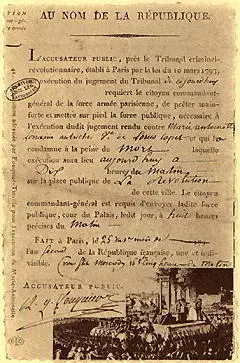 TION
AU NOM DE LA RÉPUBLIQUE.
L'ACCUSATEUR PUBLIC, près le Tribunal criminel-
révolutionnaire, établi à Paris par la loi du 10 mars 1793,
exécution du jugement du Tribunal de cejourd'huy
requiert le citoyen commandant-
général de la force armée parisienne, de prêter main-
forte et mettre sur pied la force publique, nécessaire à
l'exécution dudit jugement rendu contre Marie antoinette
Lorraine autriche Ve de Louis Capet et qui
condamne à la peine de Mort laquelle
exécution aura lieu aujourd'huy à
Dix heures du Matin
sur la place publique de La Révolution
de cette ville. Le citoyen
commandant-général est requis d'envoyer ladite force
publique, cour du Palais, ledit jour, à huit heures
précises du Matin
FAIT à Paris, le 25
l'an second de la République française, une et indi-
visible.
ACCUSATEUR PUBLIC.